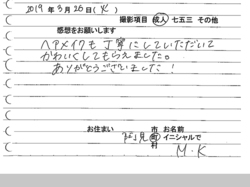 2019年3月26日(火)
撮影項目 成人 七五三 その他
感想をお願いします
ヘアメイクも丁寧にしていただいて
かわいくしてもらえました。
ありがとうございました!
お住まい 市 町 村 お名前 イニシャルで
M.K